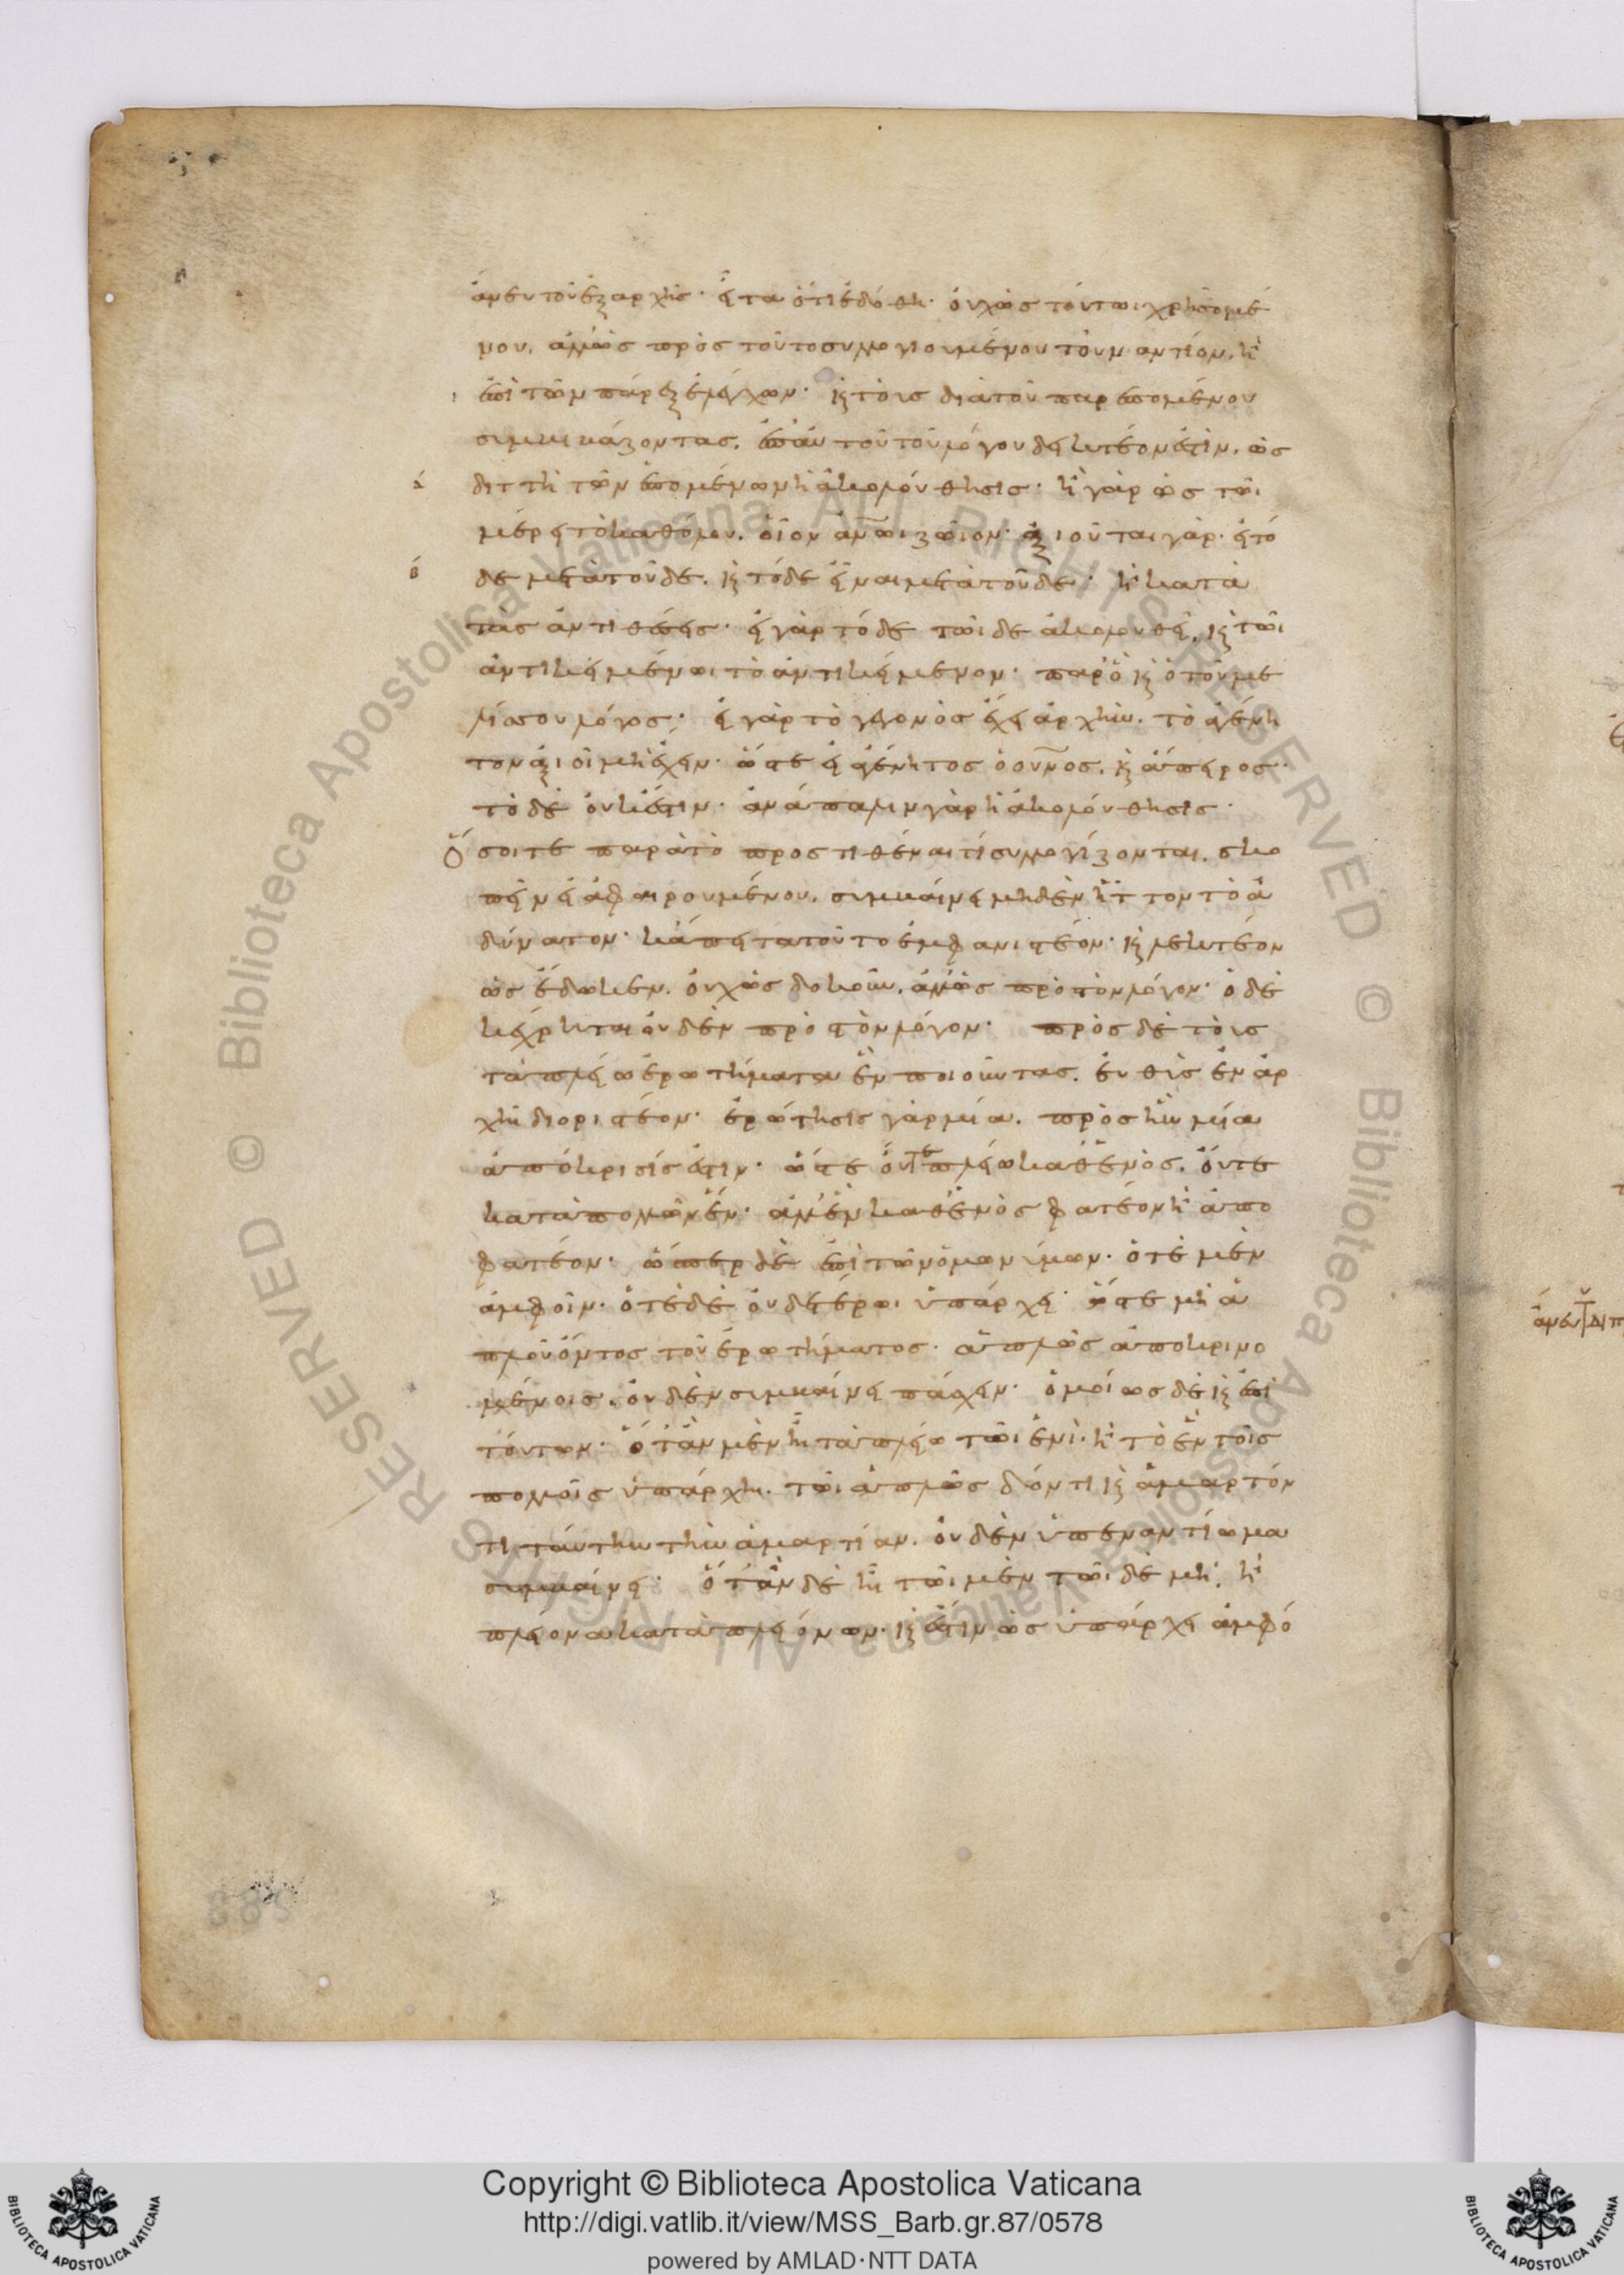 ἄνευ τοῦ ἐξ ἀρχῆς· εἶτα ὅτι ἐδόθη· οὐχ ὡς τούτωι χρησομέ
νου, ἀλλ' ὡς πρὸς τοῦτο συλλογιουμένου τοὐναντίον, ἢ
ἐπὶ τῶν παρεξελέγχων· καὶ τοὺς διὰ τοῦ παρεπομένου
συμβιβάζοντας, ἐπ' αὐτοῦ τοῦ λόγου δεικτέον ἐστὶν, ὡς
ά διττὴ τῶν ἑπομένων ἡ ἀκολούθησις· ἢ γὰρ ὡς τῶι
μέρει τὸ καθόλου, οἷον ἀν̅ωι ζῶιον· ἀξιοῦται γὰρ· εἰ τό
β́ δε μετὰ τοῦδε, καὶ τόδε εἶναι μετὰ τοῦδε· ἢ κατὰ
τὰς ἀντιθέσεις· εἰ γὰρ τόδε τῶιδε ἀκολουθεῖ, καὶ τῶι
ἀντικειμένωι τὸ ἀντικείμενον· παρ' ὃ καὶ ὁ τοῦ με
λίσσου λόγος· εἰ γὰρ τὸ γεγονὸς ἔχει ἀρχὴν, τὸ ἀγένη
τον ἀξιοῖ μὴ ἔχειν· ὥστε εἰ ἀγένητος ὁ οὐ̅νος, καὶ ἄπειρος·
τὸ δὲ οὐκ ἔστιν· ἀνάπαλιν γὰρ ἡ ἀκολούθησις·
Ὅσοι τε παρὰ τὸ προστιθέναι τί συλλογίζονται, σκο
πεῖν εἰ ἀφαιρουμένου, συμβαίνει μηδὲν ἧττον τὸ ἀ
δύνατον· κἄπειτα τοῦτο ἐμφανιστέον· καὶ λεκτέον
ὡς ἔδωκεν, οὐχ ὡς δοκοῦν, ἀλλ' ὡς πρὸς τὸν λόγον· ὁ δὲ
κέχρηται οὐδὲν πρὸς τὸν λόγον· πρὸς δὲ τοὺς
τὰ πλείω ἐρωτήματα ἓν ποιοῦντας, εὐθὺς ἐν ἀρ
χῆι διοριστέον· ἐρώτησις γὰρ μία, πρὸς ἣν μία
ἀπόκρισίς ἐστιν· ὥστε οὔτε πλείω καθ' ἑνὸς, οὔτε
κατὰ πολλῶν ἕν· ἀλλ' ἓν καθ' ἑνὸς φατέον ἢ ἀπο
φατέον· ὥσπερ δὲ ἐπὶ τῶν ὁμωνύμων· ὁτὲ μὲν
ἀμφοῖν· ὁτὲ δὲ οὐδετέρωι ὑπάρχει· ὥστε μὴ ἁ
πλοῦ ὄντος τοῦ ἐρωτήματος· ἁπλῶς ἀποκρινο
μένοις, οὐδὲν συμβαίνει πάσχειν· ὁμοίως δὲ καὶ ἐπὶ
τούτων· ὅταν μὲν ἢ τὰ πλείω τῶι ἑνὶ· ἢ τὸ ἓν τοῖς
πολλοῖς ὑπάρχηι. τῶι ἁπλῶς δόντι καὶ ἁμαρτόν
τι ταύτην τὴν ἁμαρτίαν, οὐδὲν ὑπεναντίωμα
συμβαίνει· ὅταν δὲ ἢ τῶι μὲν τῶι δὲ μὴ, ἢ
πλείονα κατὰ πλειόνων· καὶ ἔστιν ὡς ὑπάρχει ἀμφό
Copyright © Biblioteca Apostolica Vaticana
http://digi.vatlib.it/view/MSS_Barb.gr.87/0578
powered by AMLAD·NTT DATA